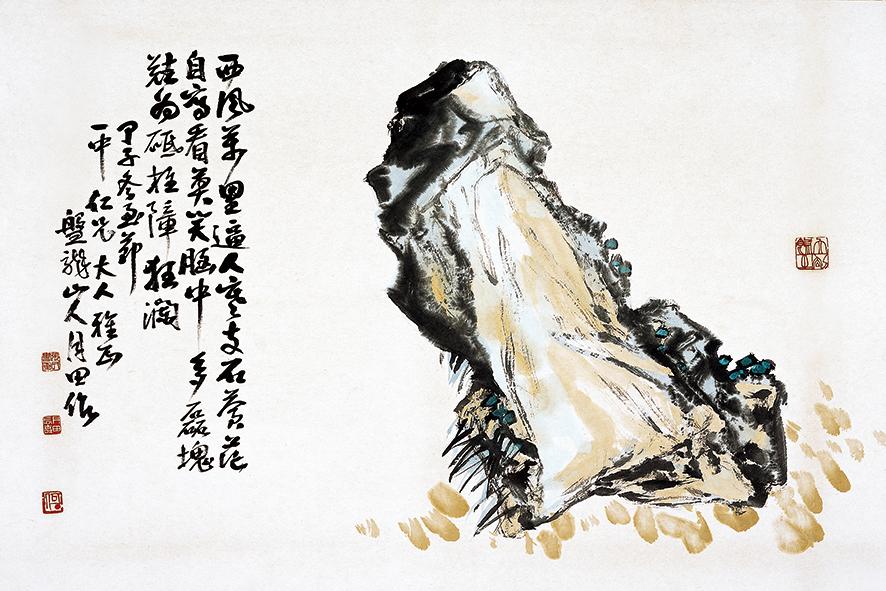 西風萬里逼人寒支石蒼茫
自寫看莫笑胸中多磊塊
为砥柱障狂瀾
甲子冬至節
一中仁兄大人雅正
盤龍山人月田作